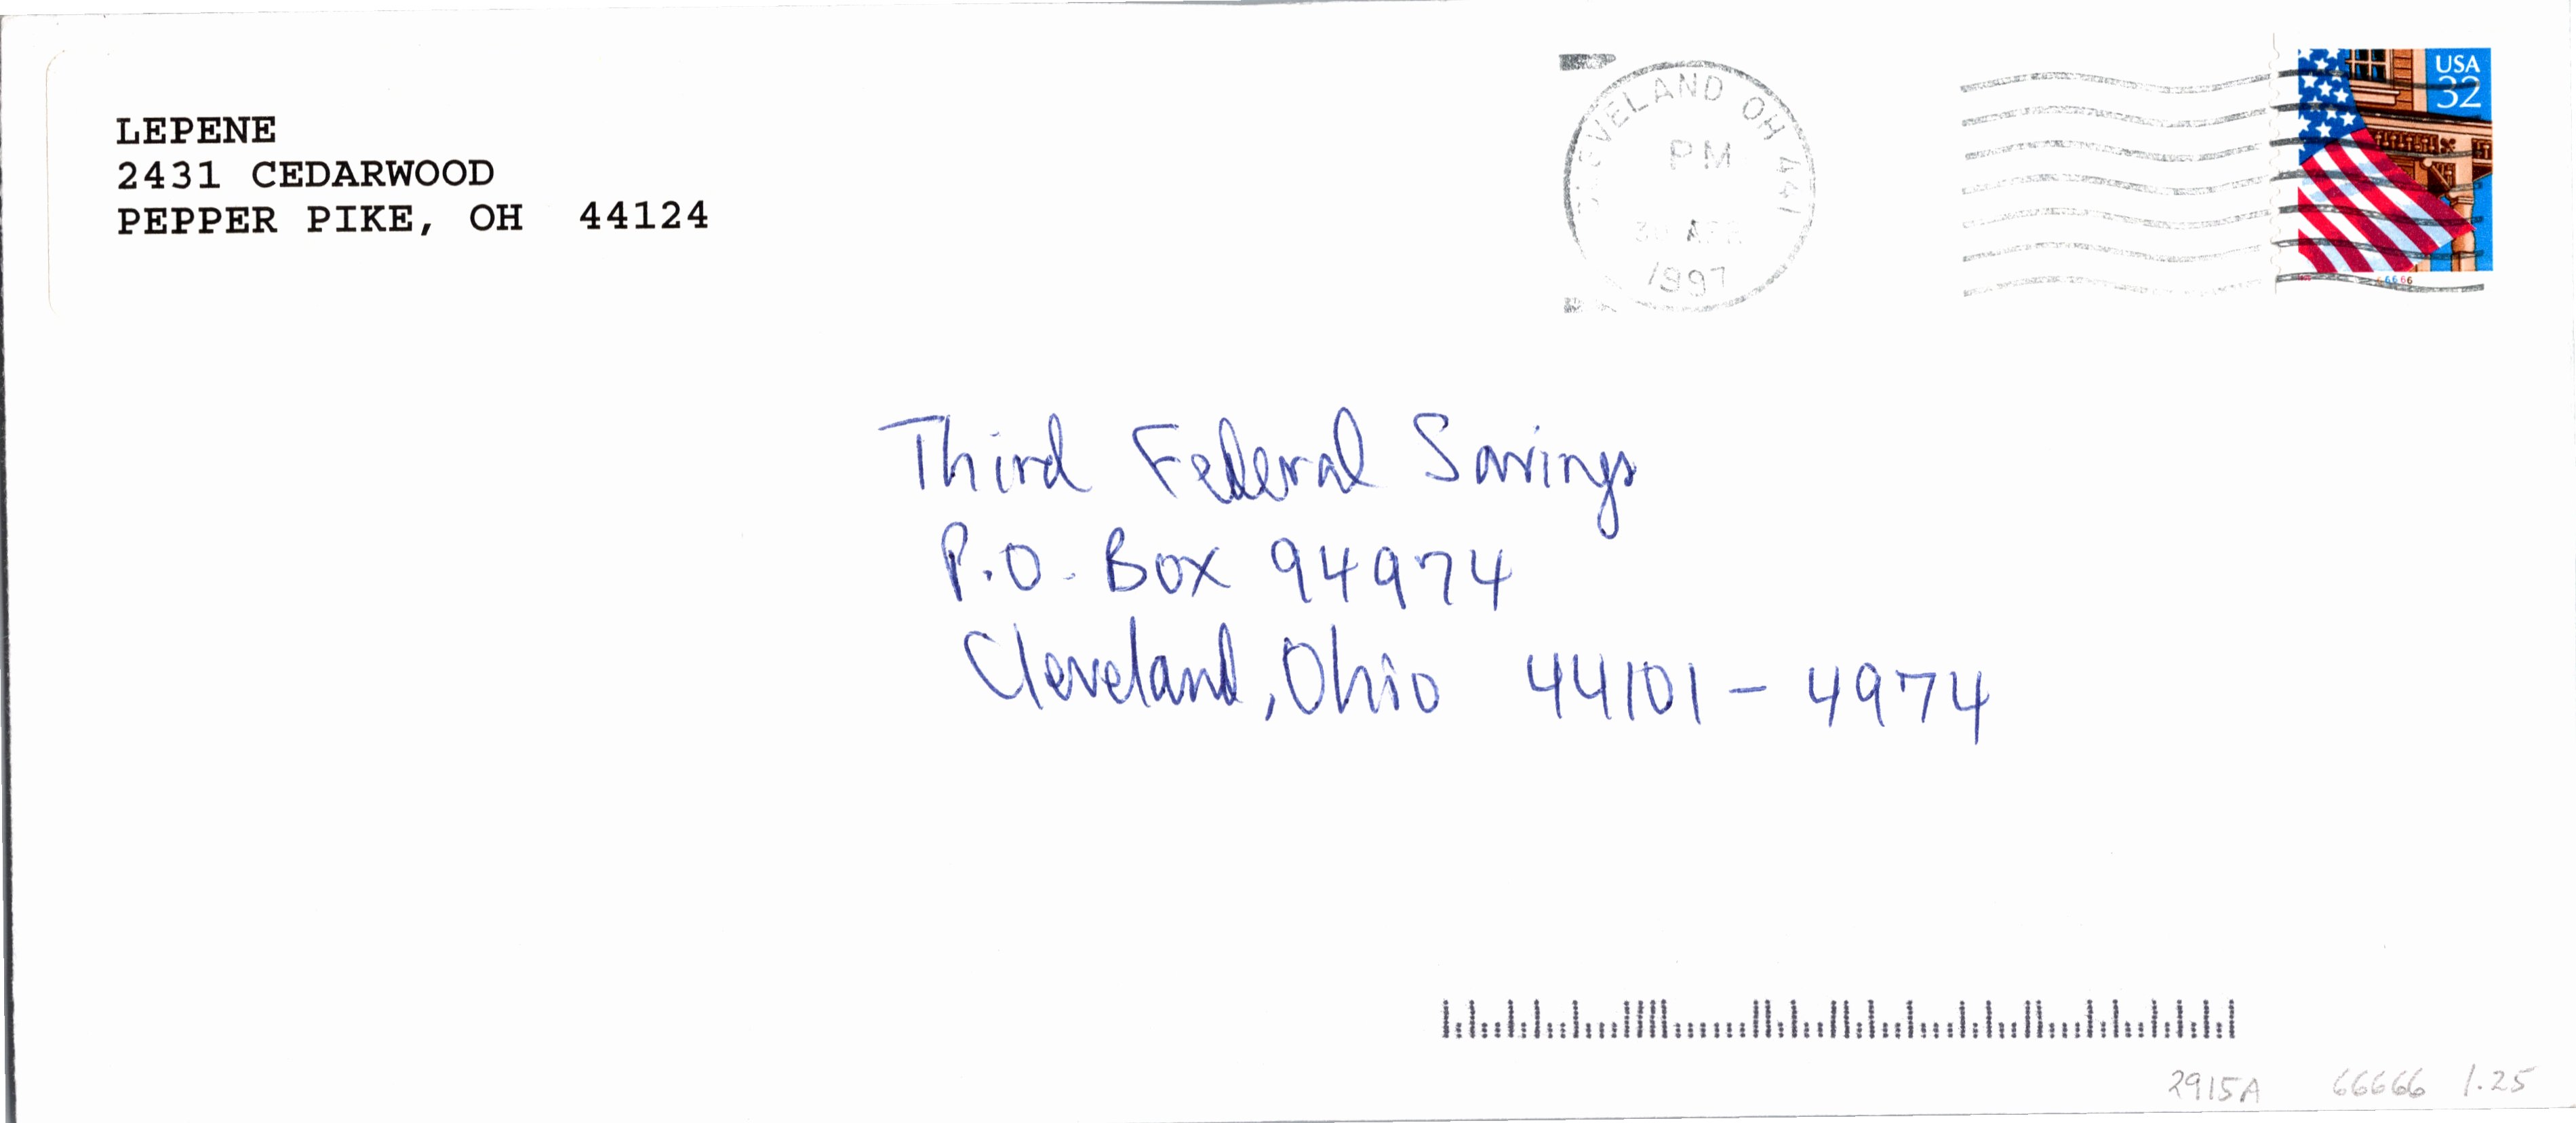 LEPENE
2431 CEDARWOOD
PEPPER PIKE, OH 44124
CLEVELAND OH 441
PM
30 APR
1997
USA
32
66666
Third Federal Savings
P.O. Box 94974
Cleveland, Ohio 44101-4974
2915A 66666 1.25